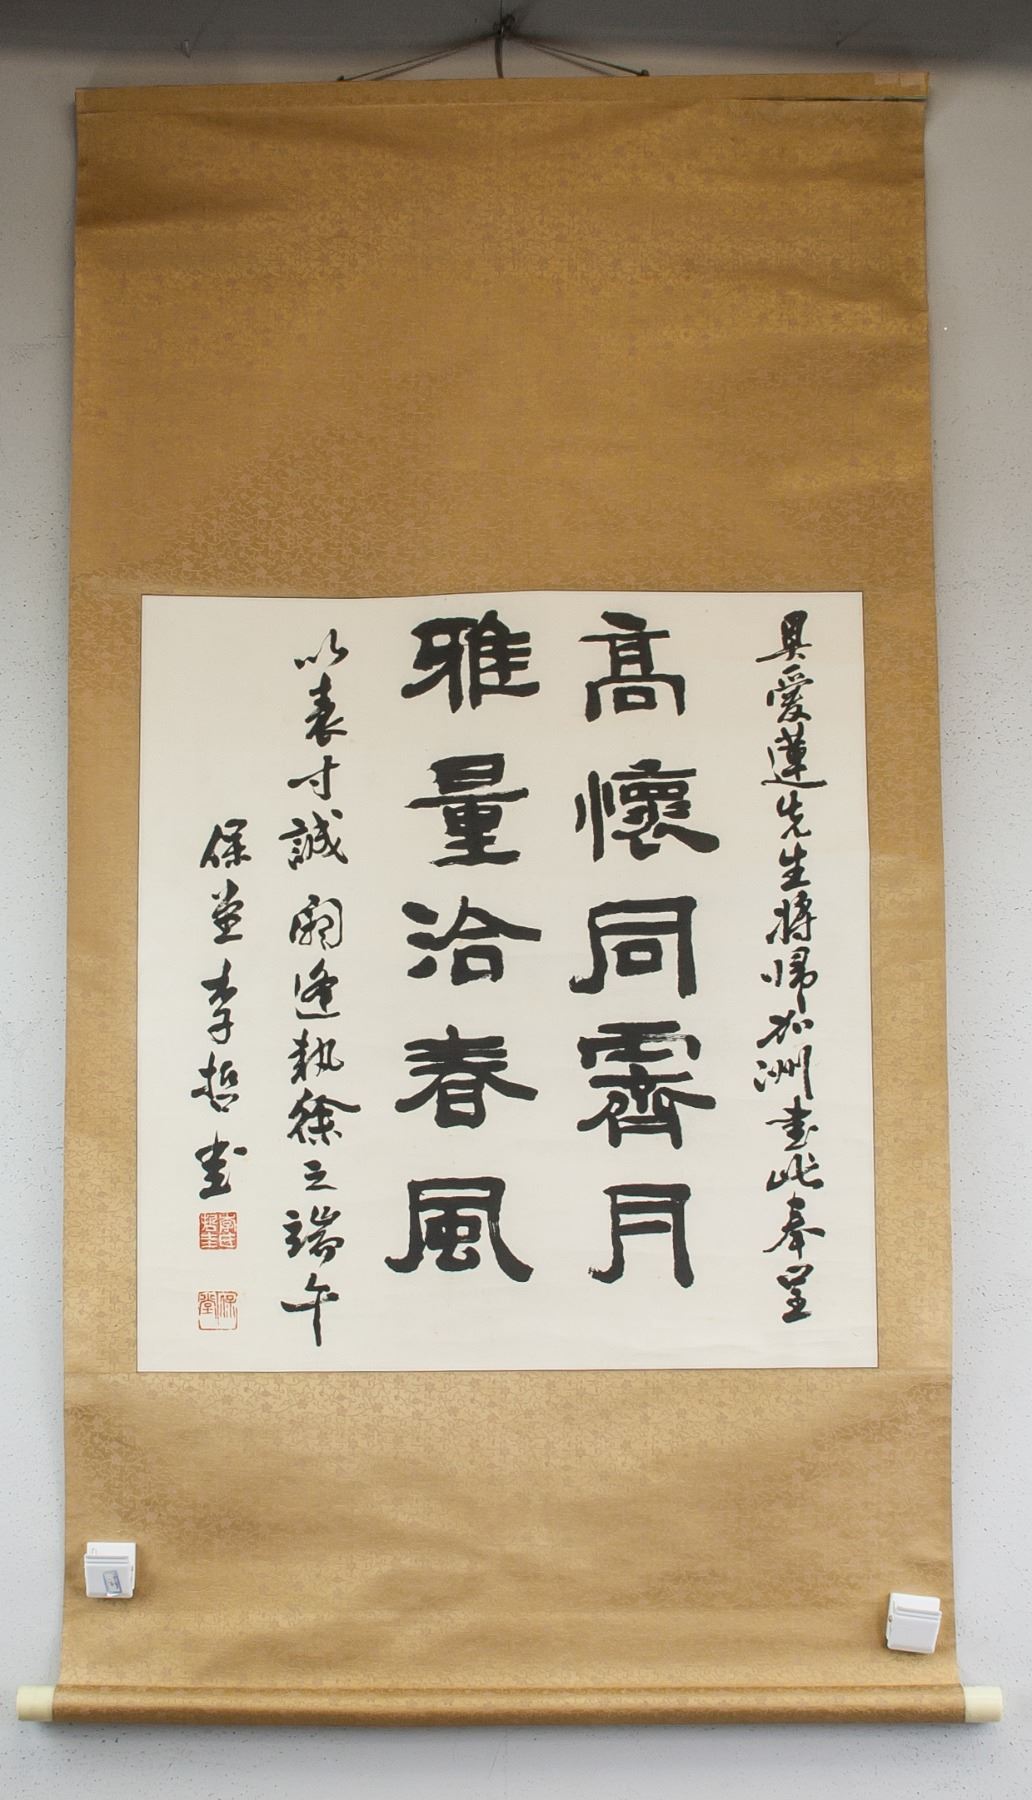 具愛蓮先生將歸加洲書此奉呈
高懷同霽月
雅量洽春風
以表寸誠 閼逢執徐之端午
保堂 李哲書
保堂